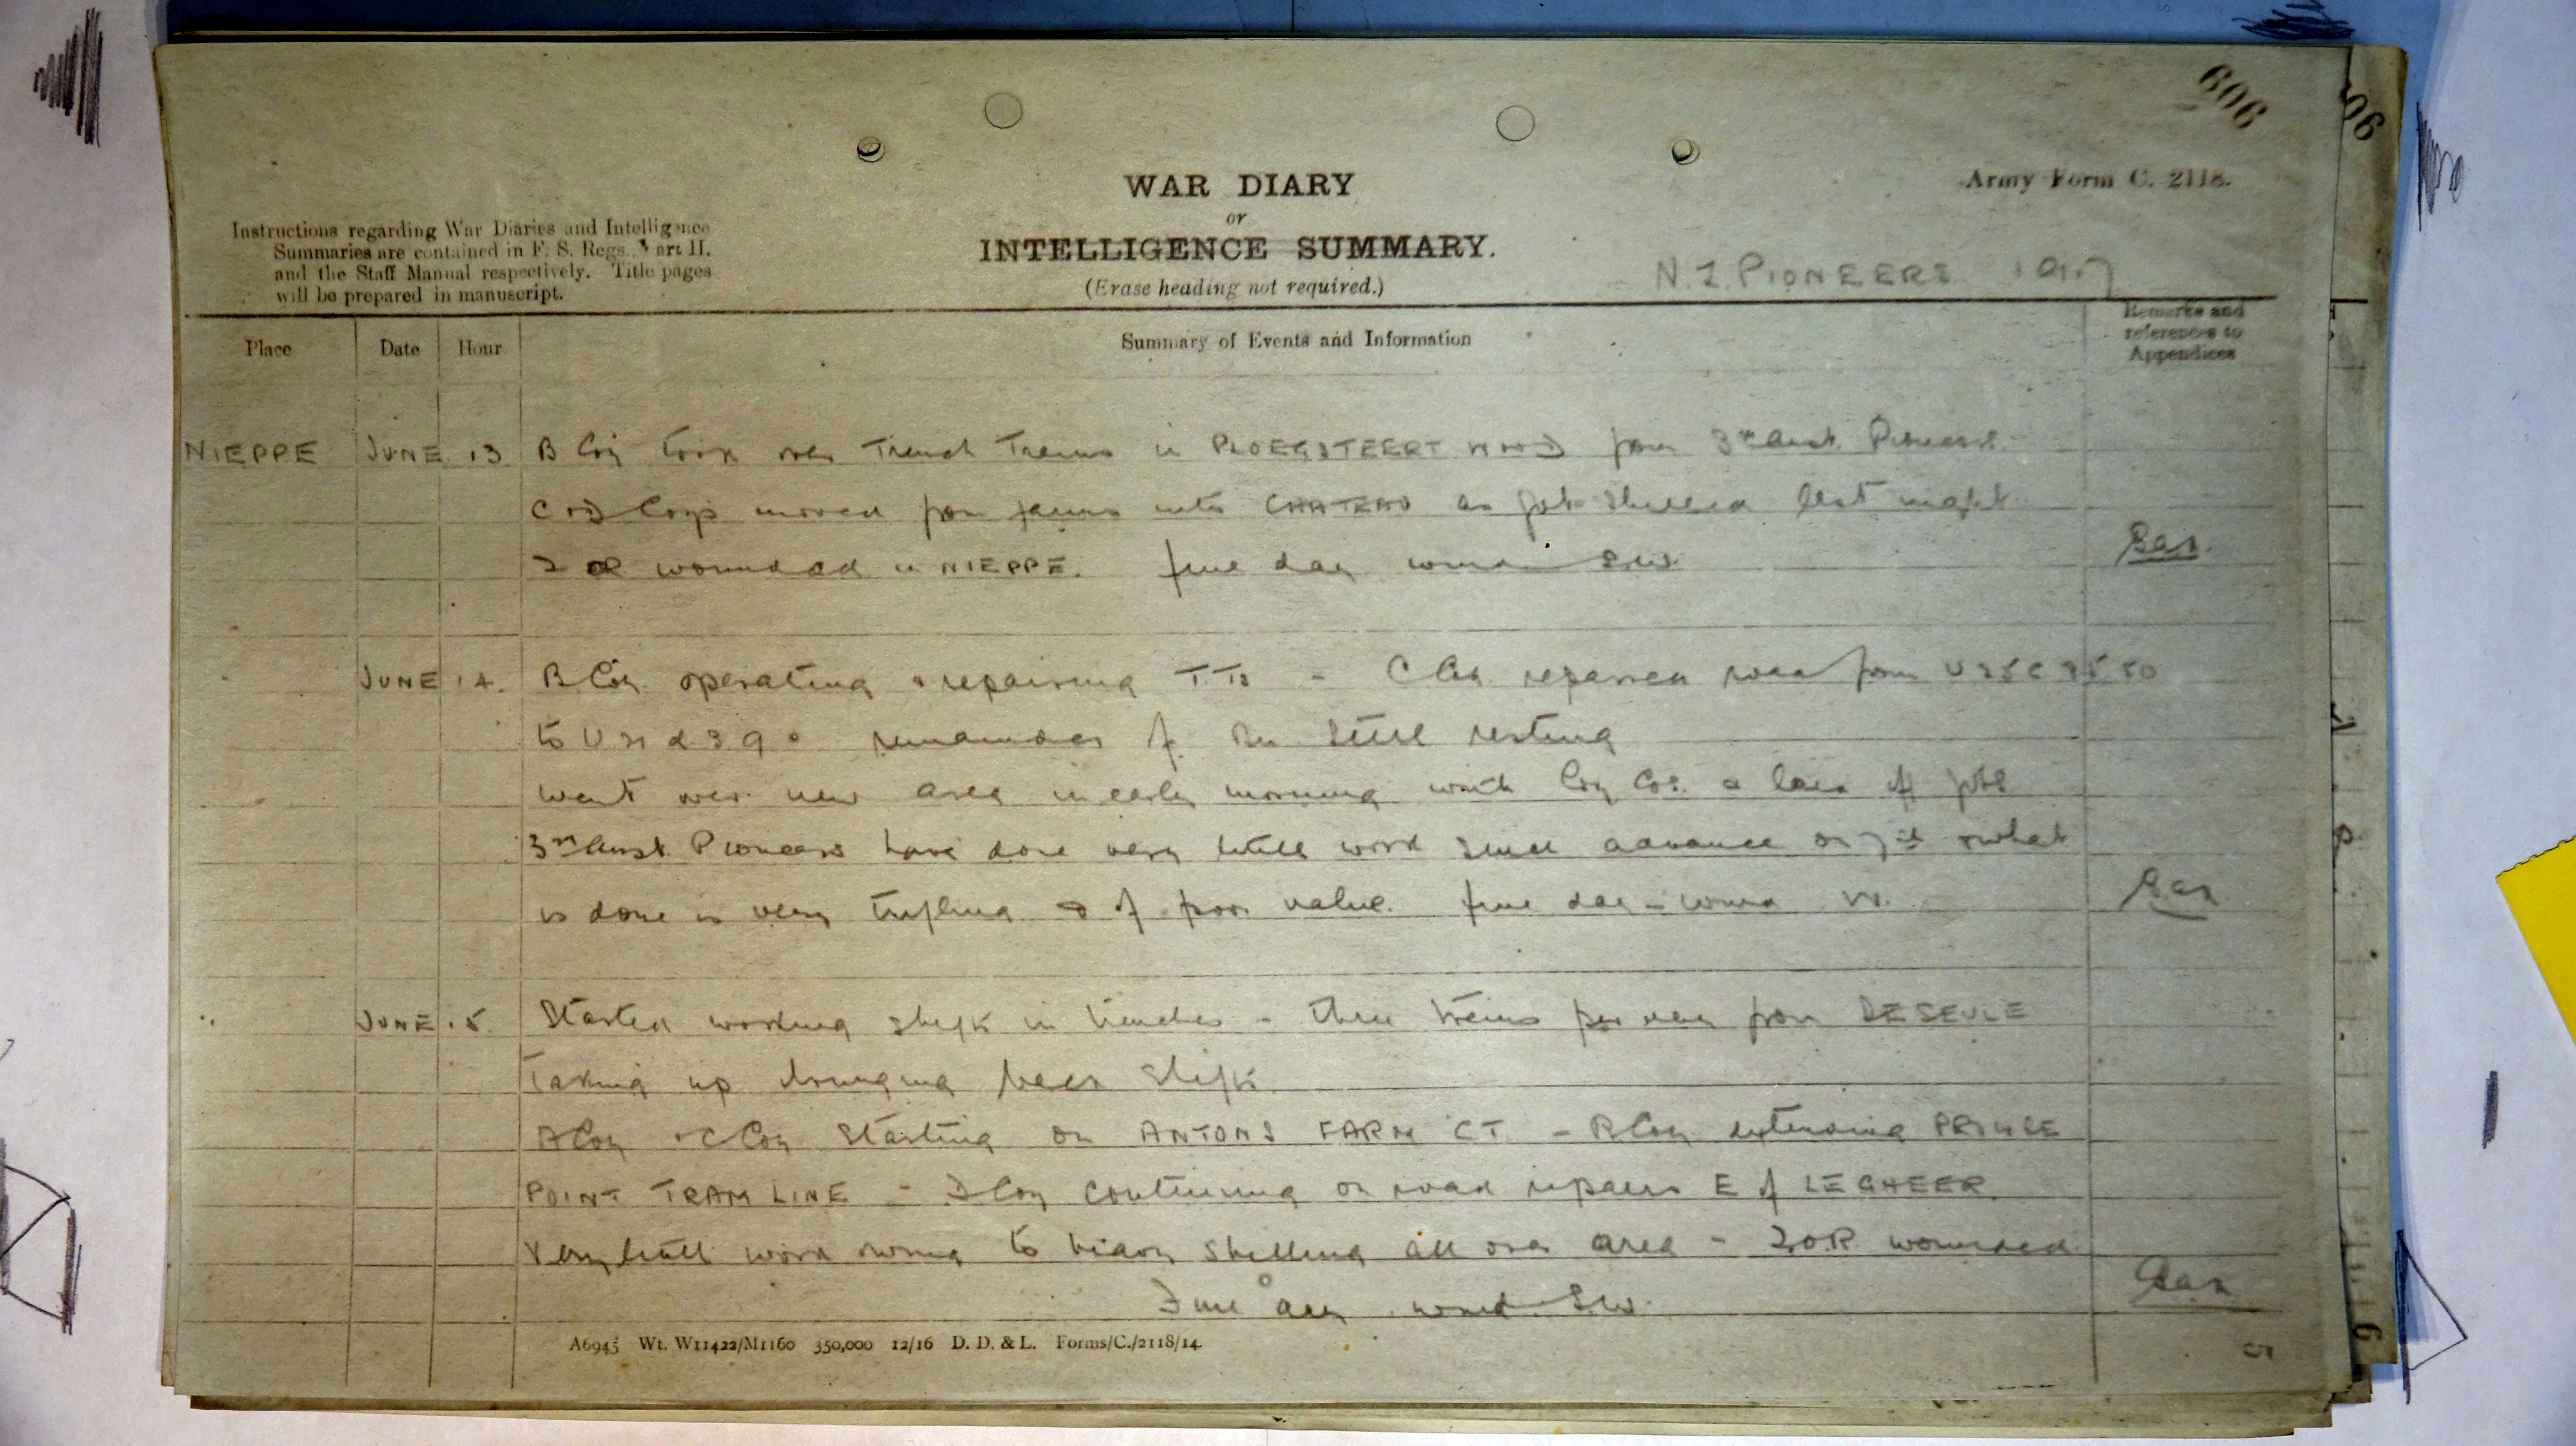 606
06
WAR DIARY
or
INTELLIGENCE SUMMARY.
(Erase heading not required.)
Army Form C. 2118.
Instructions regarding War Diaries and Intelligence
Summaries are contained in F. S. Regs., Part II.
and the Staff Manual respectively. Title pages
will be prepared in manuscript.
N.Z. PIONEERS 1917
Place Date Hour Summary of Events and Information Remarks and
references to
Appendices
NIEPPE JUNE 13 B Coy took over Trench Trams in PLOEGSTEERT WOOD from 3rd Aust. Pioneers.
C & D Coys moved from farms into CHATEAU as got shelled last night
2 OR wounded in NIEPPE. Fine day wind S.W.
JUNE 14. B Coy operating & repairing T.Ts - C Coy repaired road from
to remainder of Bn still resting
went over new area in early morning with Coy Cos. & laid off jobs
3rd Aust. Pioneers have done very little work since advance on 7th & what
is done is very trifling & of poor value. Fine day - wind W.
" JUNE 15. Started working shifts in trenches - three trains per day from DE SEULE
taking up & bringing back shifts
A Coy & C Coy starting on ANTONS FARM CT - B Coy extending PROWSE
POINT TRAM LINE - D Coy continuing on road repairs E of LE GHEER.
Very little work owing to heavy shelling all over area - 2 O.R. wounded
Fine day wind S.W.
A6945 Wt. W11422/M1160 350,000 12/16 D. D. & L. Forms/C./2118/14